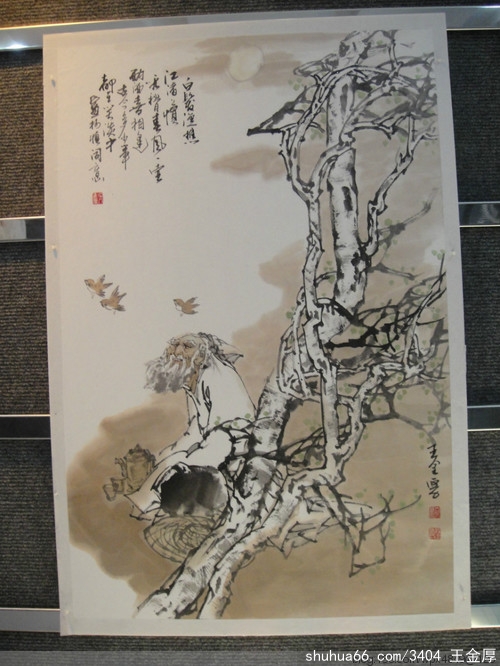 白髮渔樵
江渚慣
看秋月春風一壶
浊酒喜相逢
古今多少事
都付笑谈中
王金厚
shuhua66.com/3404 王金厚